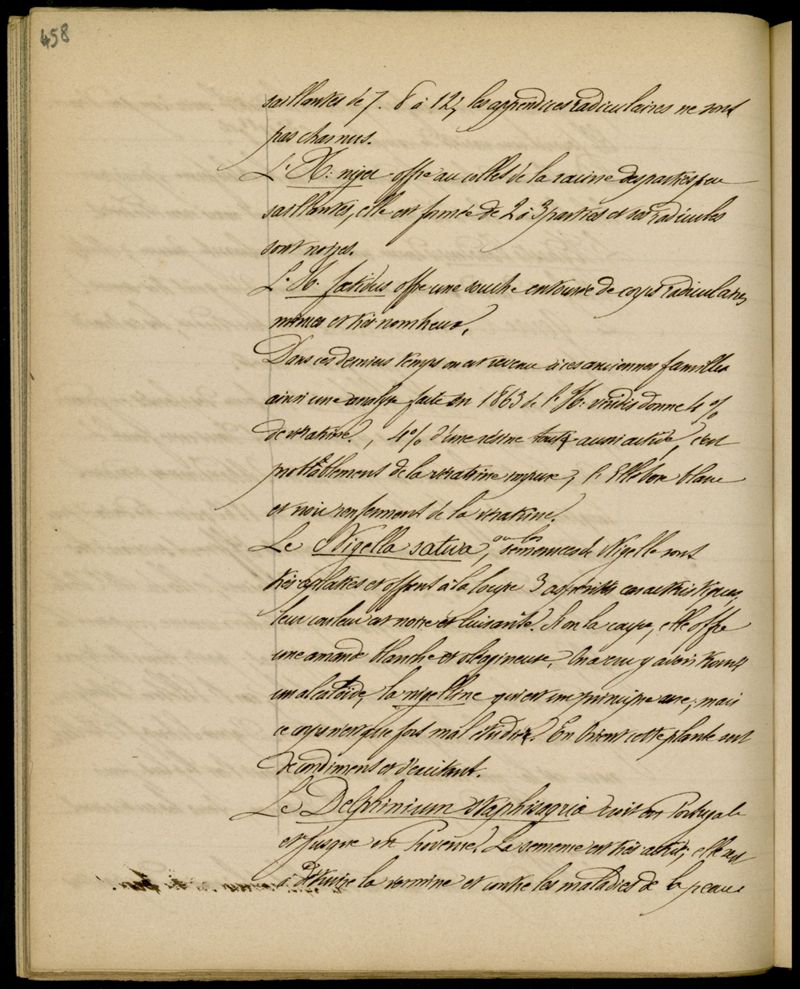 458
saillantes de 7. 8 à 12, les appendices radiculaires ne sont
pas charnus.
L'H. niger offre au collet de la racine des parties peu
saillantes, elle est formée de 2 à 3 parties et ses radicules
sont noires.
L'H. fœtidus offre une souche entourée de corps radiculaires
minces et très nombreux.
Dans ces derniers temps on est revenu à ces anciennes familles
ainsi une analyse faite en 1863 de l'H. viridis donne 4%
de vératrine, 4% d'une résine tout aussi active, c'est
probablement de la vératrine impure, l'Ellébore blanc
et noir renferment de la vératrine.
Le Nigella sativa, ou les semences de Nigelle sont
très aplaties et offrent à la loupe 3 aspérités caractéristiques,
leur couleur est noire et luisante. Si on la coupe, elle offre
une amande blanche et oléagineuse. On a cru y avoir trouvé
un alcaloïde, la nigelline qui est un principe âcre, mais
ce corps n'est que fort mal étudié. En Orient cette plante sert
de condiment et d'excitant.
Le Delphinium staphisagria croit en Portugal
et jusque en Provence. La semence est très active, elle sert
à détruire la vermine et contre les maladies de la peau